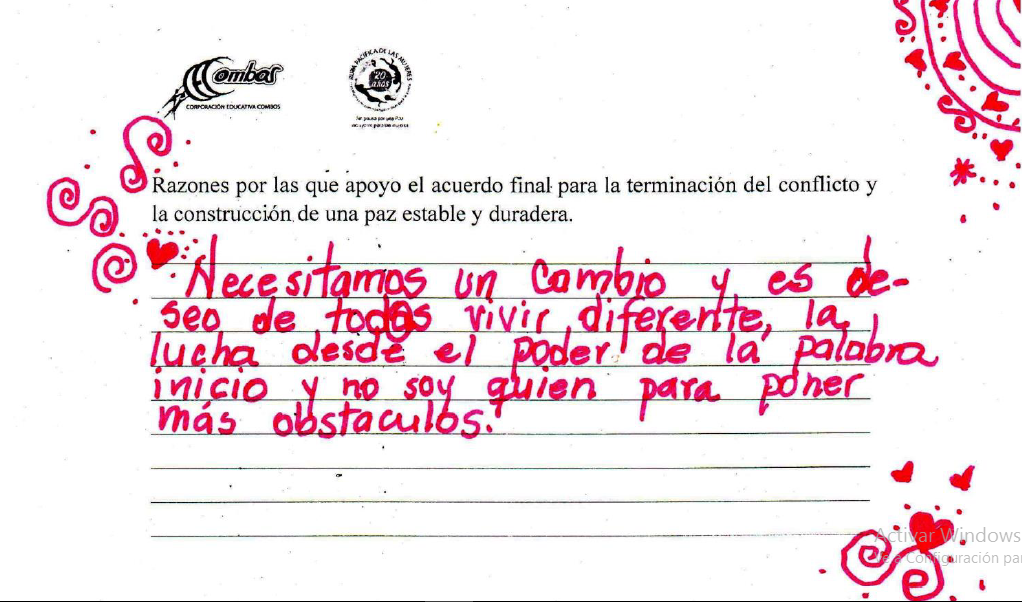 Combos
CORPORACIÓN EDUCATIVA COMBOS
RUTA PACÍFICA DE LAS MUJERES
20 años
Razones por las que apoyo el acuerdo final para la terminación del conflicto y
la construcción de una paz estable y duradera.
Necesitamos un cambio y es de-
seo de todos vivir diferente, la
lucha desde el poder de la palabra
inicio y no soy quien para poner
más obstaculos.
Activar Windows
Ve a Configuración par